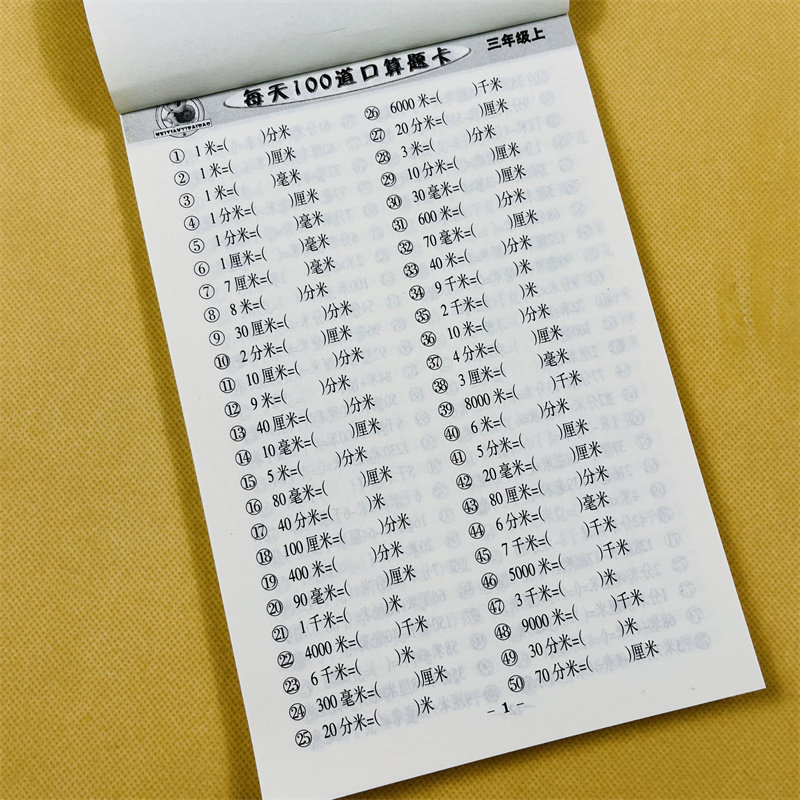 每天100道口算题卡
三年级上
MEITIANYIBAIDAO
① 1米=( )分米
② 1米=( )厘米
③ 1米=( )毫米
④ 1分米=( )厘米
⑤ 1分米=( )毫米
⑥ 1厘米=( )毫米
⑦ 7厘米=( )毫米
⑧ 8米=( )分米
⑨ 30厘米=( )分米
⑩ 2分米=( )厘米
⑪ 10厘米=( )分米
⑫ 9米=( )分米
⑬ 40厘米=( )分米
⑭ 10毫米=( )厘米
⑮ 5米=( )分米
⑯ 80毫米=( )厘米
⑰ 40分米=( )米
⑱ 100厘米=( )分米
⑲ 400米=( )分米
⑳ 90毫米=( )厘米
㉑ 1千米=( )米
㉒ 4000米=( )千米
㉓ 6千米=( )米
㉔ 300毫米=( )厘米
㉕ 20分米=( )米
㉖ 6000米=( )千米
㉗ 20分米=( )厘米
㉘ 3米=( )分米
㉙ 10分米=( )厘米
㉚ 30毫米=( )厘米
㉛ 600米=( )分米
㉜ 70毫米=( )厘米
㉝ 40米=( )分米
㉞ 9千米=( )米
㉟ 2千米=( )米
㊱ 10米=( )分米
㊲ 4分米=( )厘米
㊳ 3厘米=( )毫米
㊴ 8000米=( )千米
㊵ 6米=( )分米
㊶ 5分米=( )厘米
㊷ 20毫米=( )厘米
㊸ 80厘米=( )分米
㊹ 6分米=( )毫米
㊺ 7千米=( )米
㊻ 5000米=( )千米
㊼ 3千米=( )米
㊽ 9000米=( )千米
㊾ 30分米=( )米
㊿ 70分米=( )厘米
- 1 -